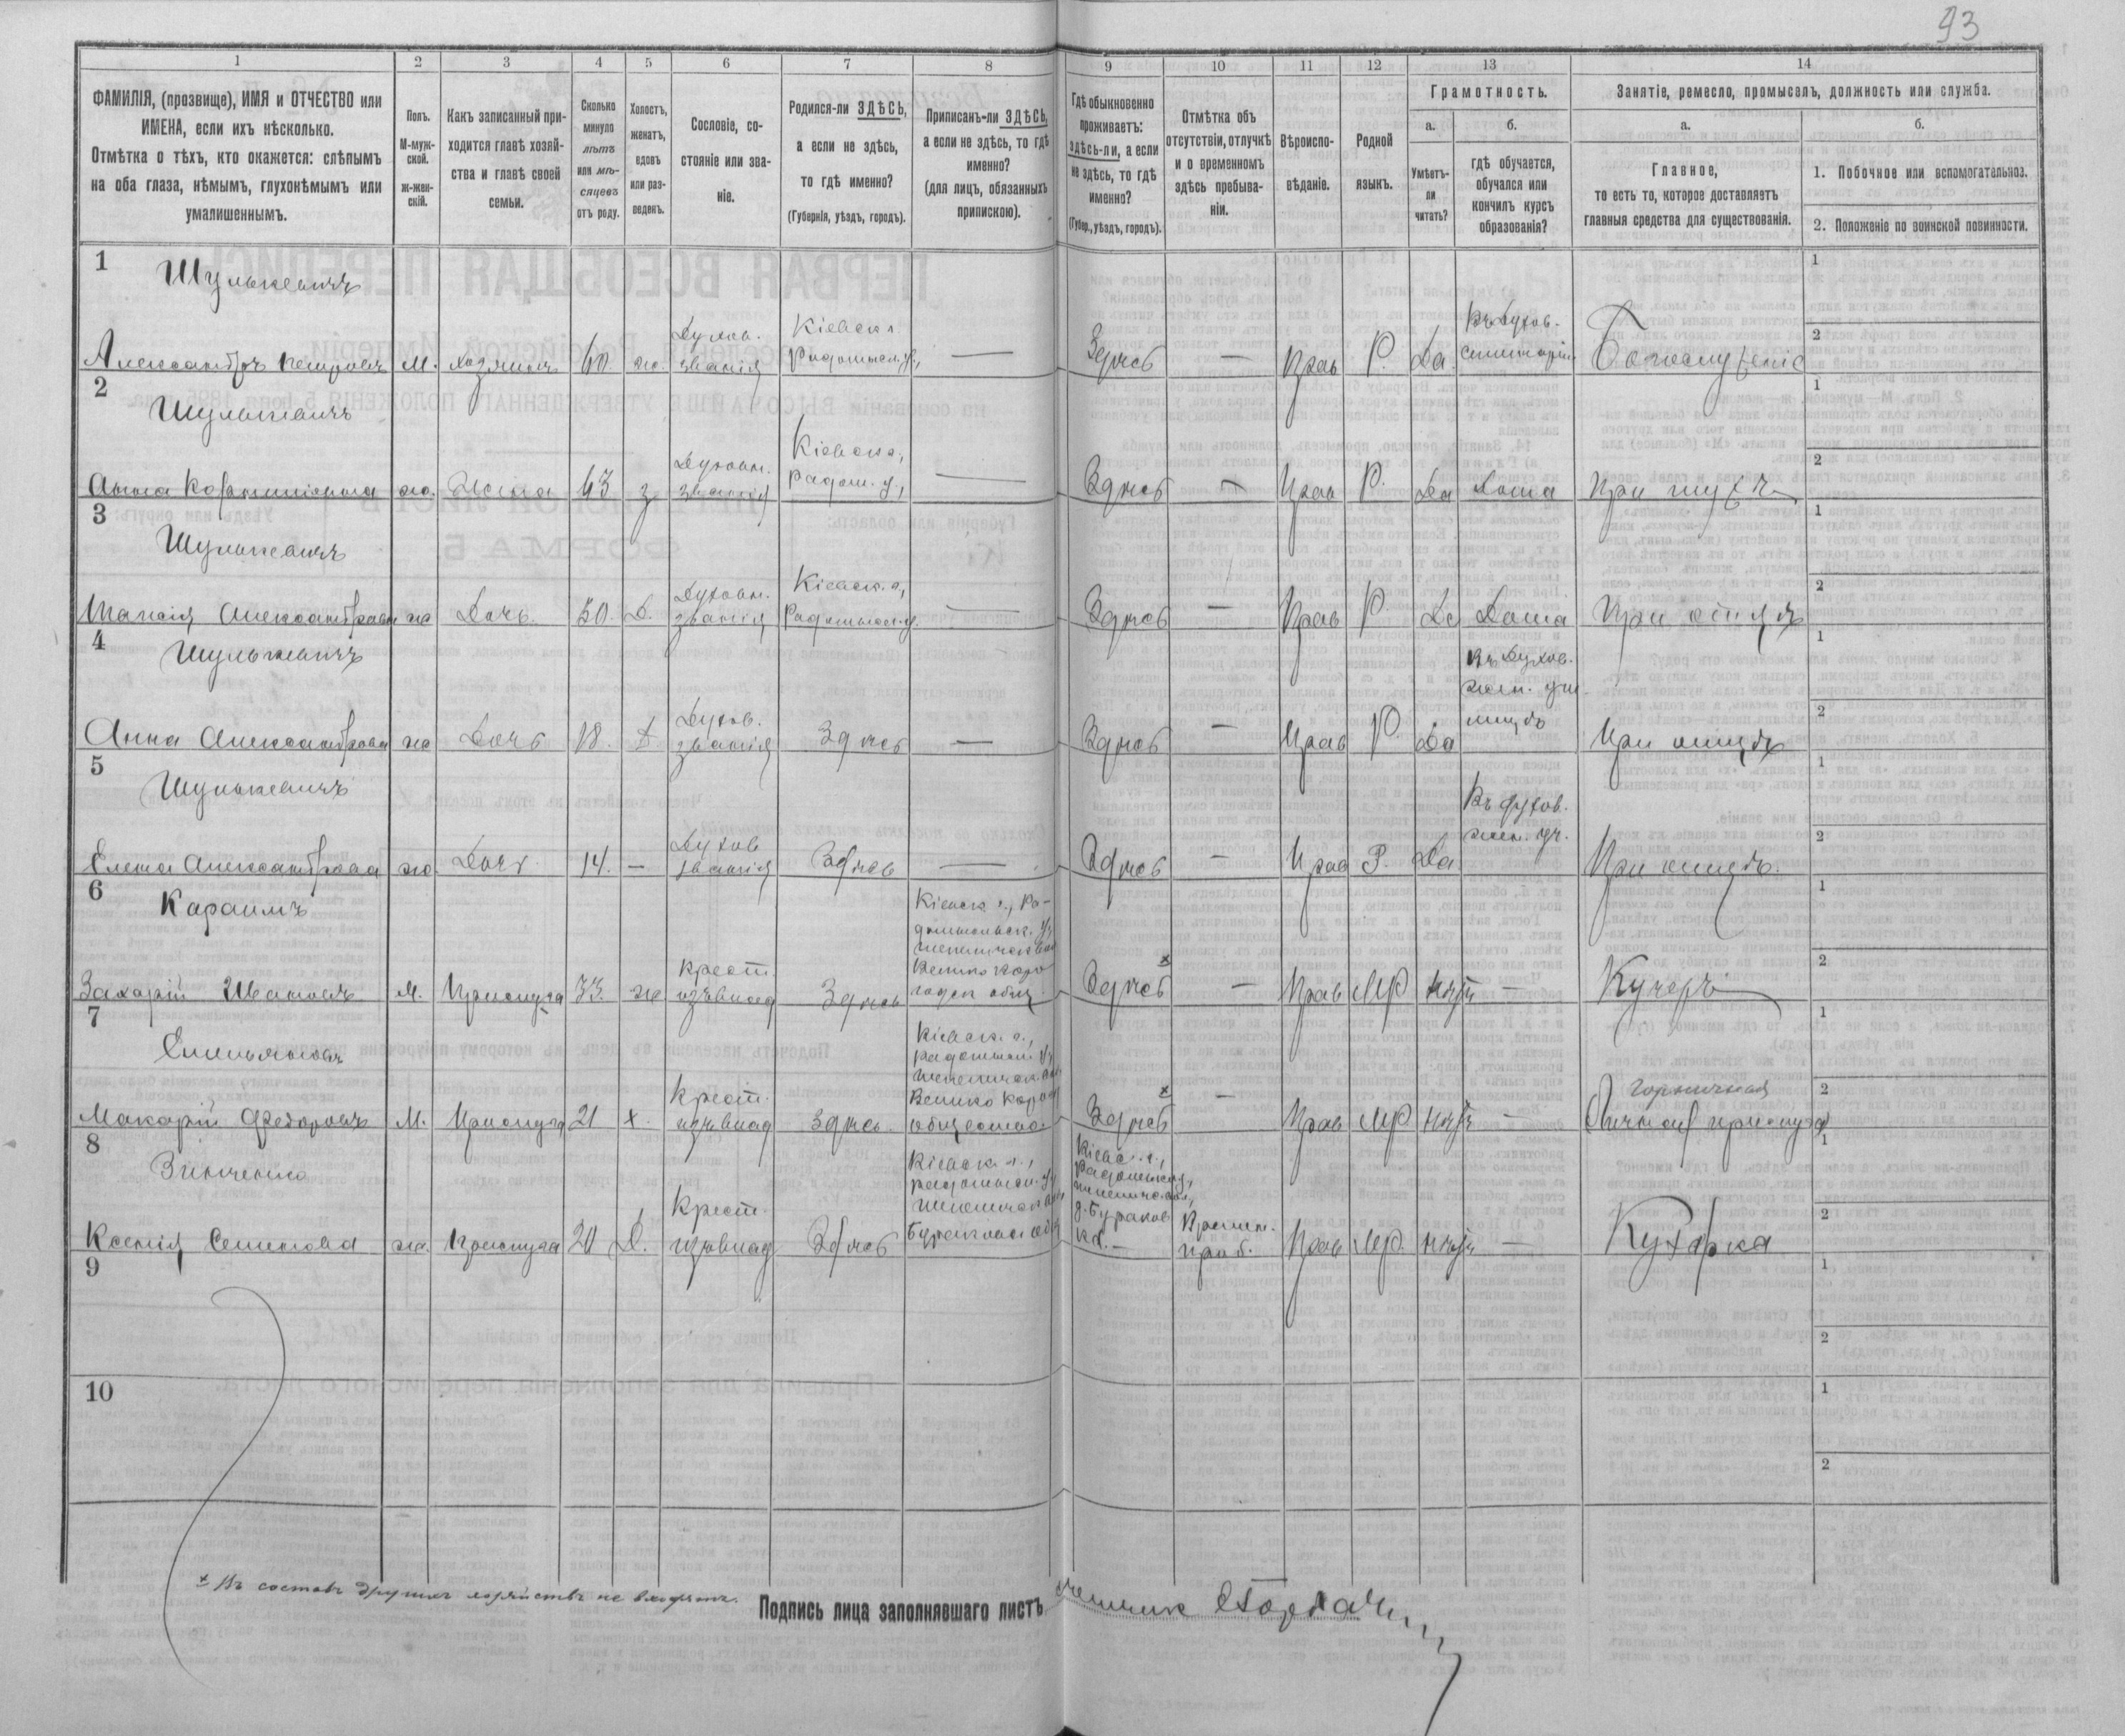 93
1 2 3 4 5 6 7 8 9 10 11 12 13 14
ФАМИЛІЯ, (прозвище), ИМЯ и ОТЧЕСТВО или
ИМЕНА, если ихъ нѣсколько.
Отмѣтка о тѣхъ, кто окажется: слѣпымъ
на оба глаза, нѣмымъ, глухонѣмымъ или
умалишеннымъ.
Полъ.
М-муж-
ской.
ж-жен-
скій.
Какъ записанный при-
ходится главѣ хозяй-
ства и главѣ своей
семьи.
Сколько
минуло
лѣтъ
или мѣ-
сяцевъ
отъ роду.
Холостъ,
женатъ,
вдовъ
или раз-
веденъ.
Сословіе, со-
стояніе или зва-
ніе.
Родился-ли ЗДѢСЬ,
а если не здѣсь,
то гдѣ именно?
(Губернія, уѣздъ, городъ).
Приписанъ-ли ЗДѢСЬ,
а если не здѣсь, то гдѣ
именно?
(для лицъ, обязанныхъ
припискою).
Гдѣ обыкновенно
проживаетъ:
здѣсь-ли, а если
не здѣсь, то гдѣ
именно?
(Губер., уѣздъ, городъ).
Отмѣтка объ
отсутствіи, отлучкѣ
и о временномъ
здѣсь пребыва-
ніи.
Вѣроиспо-
вѣданіе.
Родной
языкъ.
Грамотность.
а.
Умѣетъ-
ли
читать?
б.
гдѣ обучается,
обучался или
кончилъ курсъ
образованія?
Занятіе, ремесло, промыселъ, должность или служба.
а.
Главное,
то есть то, которое доставляетъ
главныя средства для существованія.
б.
1. Побочное или вспомогательное.
2. Положеніе по воинской повинности.
1 Шулькевичъ
Александръ Петровъ М. хозяинъ 60. ж. Духов. званія Кіевск. г. Радомысл. у., — Здѣсь — Прав Р. Да. Въ Духов. семинаріи Богослуженіе
2 Шулькевичъ
жо. Жена 43 з Духовн. званія Кіевск. г., Радом. у., — Здѣсь — Прав Р. Да Дома При мужѣ
3 Шулькевичъ
Александрова жо Дочь. Д. Духовн. званія Кіевск. г., Радомысл. у. — Здѣсь — Прав Р. Да Дома При отцѣ
4 Шулькевичъ
Анна Александрова жо Дочь 18. Д. Духов. званія Здѣсь — Здѣсь — Прав Р. Да Въ Духов. жен. учи- лищѣ При отцѣ
5 Шулькевичъ
Елена Александрова жо. Дочь 14. — Духов званія Здѣсь — Здѣсь — Прав Р. Да Въ духов. жен. уч. При отцѣ.
6 Караимъ
Захарій Ивановъ М. Прислуга 33. ж Крест. изъ влад Здѣсь Кіевск. г., Ра- домысльск. у., Велико Коро- годск общ. Здѣсь × — Прав Мр нѣтъ — Кучеръ
7 Емельяновъ
Макарій Федоровъ М. Прислуга 21 х. Крест. изъ влад Здѣсь. Кіевск. г., Радомысл. у., Велико Корогод общество. Здѣсь × — Прав Мр нѣтъ — горничная Личная прислуга
8 Зинченко
Ксенія Семенова жо. Прислуга 20 Д. Крест. изъ влад Здѣсь Кіевск. г., Радомысл. у., Кіевс. г., Радомысл. у., д. Буряков ка. — Времен. преб. Прав Мр. нѣтъ — Кухарка
9
10
× Въ составъ другихъ хозяйствъ не входятъ.
Подпись лица заполнявшаго листъ